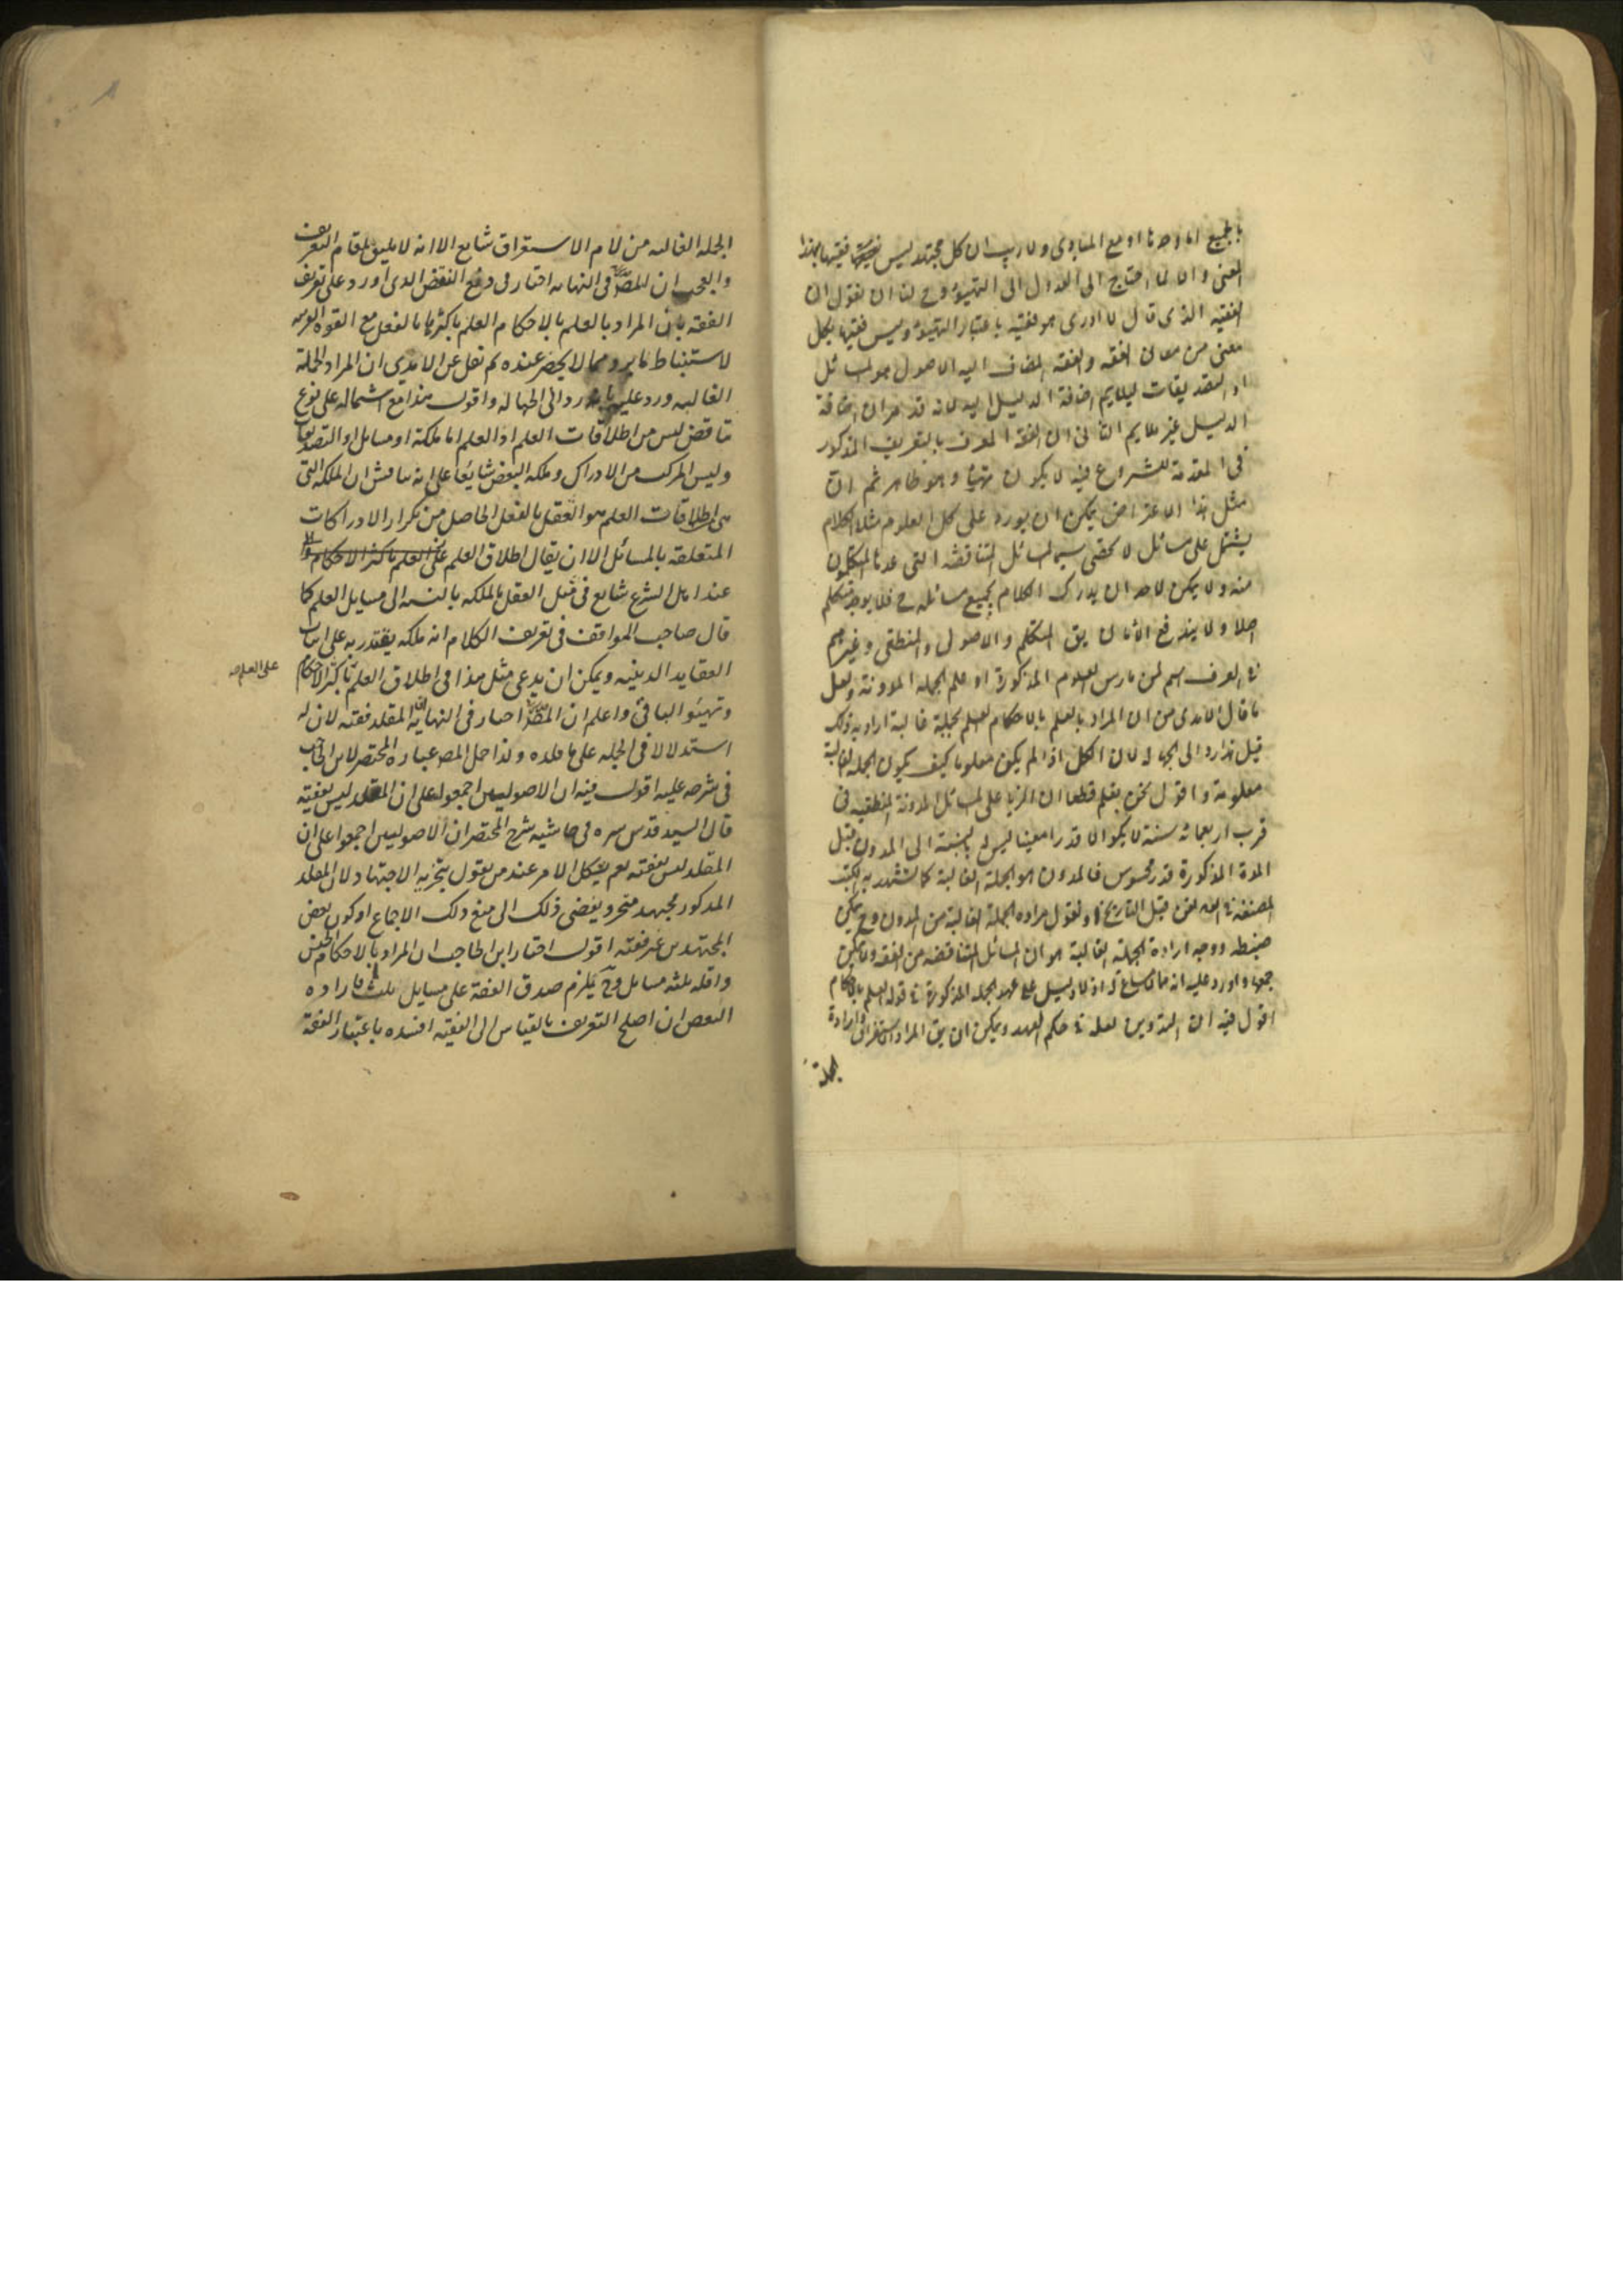 بالجميع اما وحدها او مع المبادى ولا ريب ان كل مجتهد ليس فقيها بهذا
المعنى والا لما احتاج الى العدول الى التهيؤ وح لنا ان نقول ان
الفقيه الذى قال لا ادرى هو فقيه باعتبار التهيؤ وليس فقيها بكل
معنى من معانى الفقه والفقه المضاف اليه الاصول هو المسائل
او التصديقات ليلايم اضافة الدليل اليه لانه قد مر ان اضافة
الدليل غير ملايم الثانى ان الفقه المعرف بالتعريف المذكور
فى المقدمة للشروع فيه لا يكون تهيئا وهو ظاهر ثم ان
مثل هذا الاعتراض يمكن ان يورد على كل العلوم مثلا الكلام
يشتمل على مسائل لا تحصى سيما المسائل المتناقضة التى عدها المتكلمون
منه ولا يمكن لاحد ان يدرك الكلام بجميع مسائله فح فلا يوجد متكلم
اصلا ولا يندفع الا بان يق المتكلم والاصولى والمنطقى وغيرهم
فى العرف اسم لمن مارس العلوم المذكورة او علم الجملة المدونة ولعل
ما قال الآمدى من ان المراد بالعلم بالاحكام العلم بجملة غالبة اراد به ذلك
قيل هذا رد الى الجهالة لان الكل اذا لم يكن معلوما كيف يكون الجملة الغالبة
معلومة واقول نحن نعلم قطعا ان المزيد على المسائل المدونة المنطقيه فى
قرب اربعمائه سنة لا يكون الا قدرا معينا ليس له بالنسبة الى المدون قبل
المدة المذكورة قدر محسوس فالمدون هو الجملة الغالبة كما تشهد به الكتب
المصنفة فى الفن قبل التاريخ او نقول مراده الجملة الغالبة من المدون وح يمكن
ضبطه ووجه ارادة الجملة الغالبة هو ان المسائل المتناقضه من الفقه ولا يمكن
جمعها واورد عليه انه لا دليل على عهد الجملة المذكورة فى قوله العلم بالاحكام
اقول فيه ان التدوين لعله فى حكم العهد ويمكن ان يق المراد استغراق وارادة
الجملة
الجمله الغالبه من لام الاستغراق شايع الا انه لا يليق بمقام التعريف
والعجب ان المص فى النهايه اختار فى دفع النقض الذى اورد على تعريف
الفقه بان المراد بالعلم بالاحكام العلم باكثرها بالفعل مع القوه القريبه
لاستنباط ما يرد مما لا يحضر عنده ثم نقل عن الامدي ان المراد الجملة
الغالبه ورد عليه بانه رد الى الجهاله واقول هذا مع اشتماله على نوع
تناقض ليس من اطلاقات العلم اذ العلم اما ملكة او مسايل او التصديقات
وليس المركب من الادراك وملكه البعض شايعا على انه يناقش ان الملكه التى
هى اطلاقات العلم هو العقل بالفعل الحاصل من تكرار الادراكات
المتعلقه بالمسائل الا ان يقال اطلاق العلم على العلم باكثر الاحكام
عند اهل الشرع شايع فى مثل العقل بالملكه بالنسبه الى مسايل العلم كما
قال صاحب المواقف فى تعريف الكلام انه ملكه يقتدر به على اثبات
العقايد الدينيه ويمكن ان يدعى مثل هذا فى اطلاق العلم باكثر الاحكام
على العلم صح
وتهيئو الباقى واعلم ان المص اختار فى النهاية ان المقلد فقيه لان له
استدلالا فى الجمله على ما قلده ولذا حمل المص عباره المختصر لابن الحاجب
فى شرحه عليه اقول فيه ان الاصوليين اجمعوا على ان المقلد ليس بفقيه
قال السيد قدس سره فى حاشيه شرح المختصر ان الاصوليين اجمعوا على ان
المقلد ليس بفقيه نعم يشكل الامر عند من يقول بتجزيه الاجتهاد لان المقلد
المذكور مجتهد متجز ويفضى ذلك الى منع ذلك الاجماع او كون بعض
المجتهدين غير فقيه اقول اختار ابن الحاجب ان المراد بالاحكام الجنس
واقله ثلثه مسايل وح يلزم صدق الفقه على مسايل ثلث فاراده
البعض ان اصلح التعريف بالقياس الى الفقيه افسده باعتبار الفقه